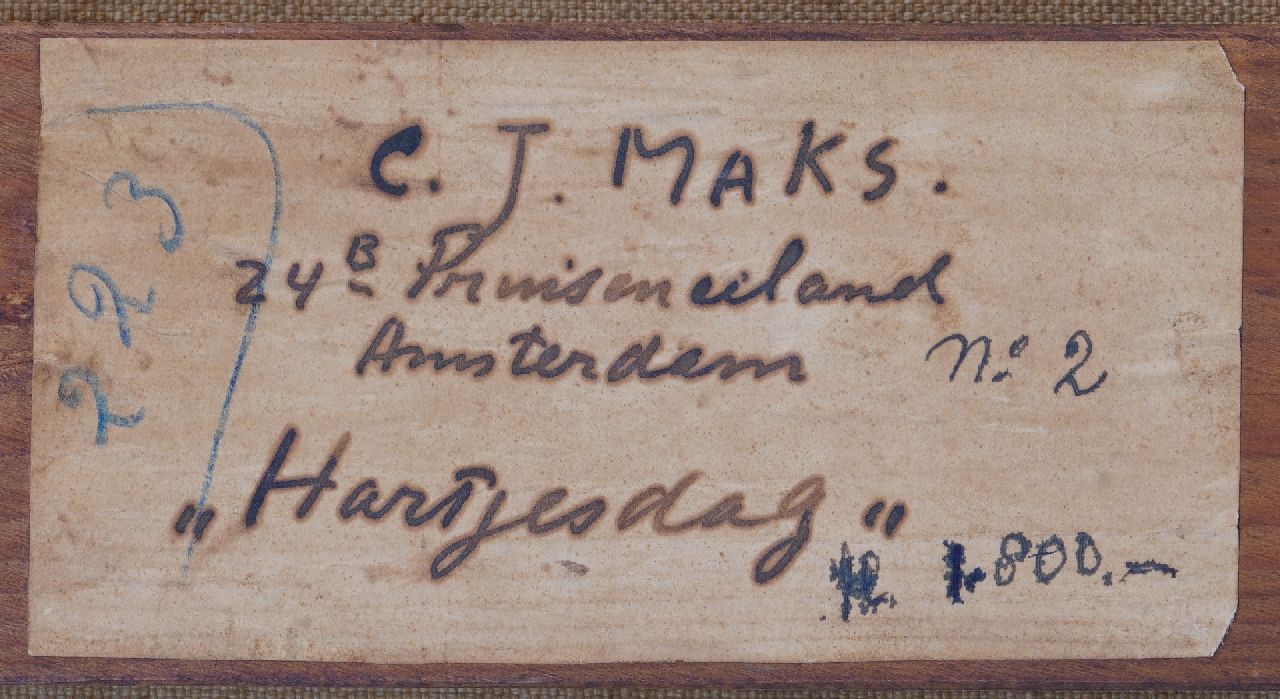 223
C. J. MAKS.
24B Pruiseneiland
Amsterdam
No. 2
„Hartjesdag"
800.-